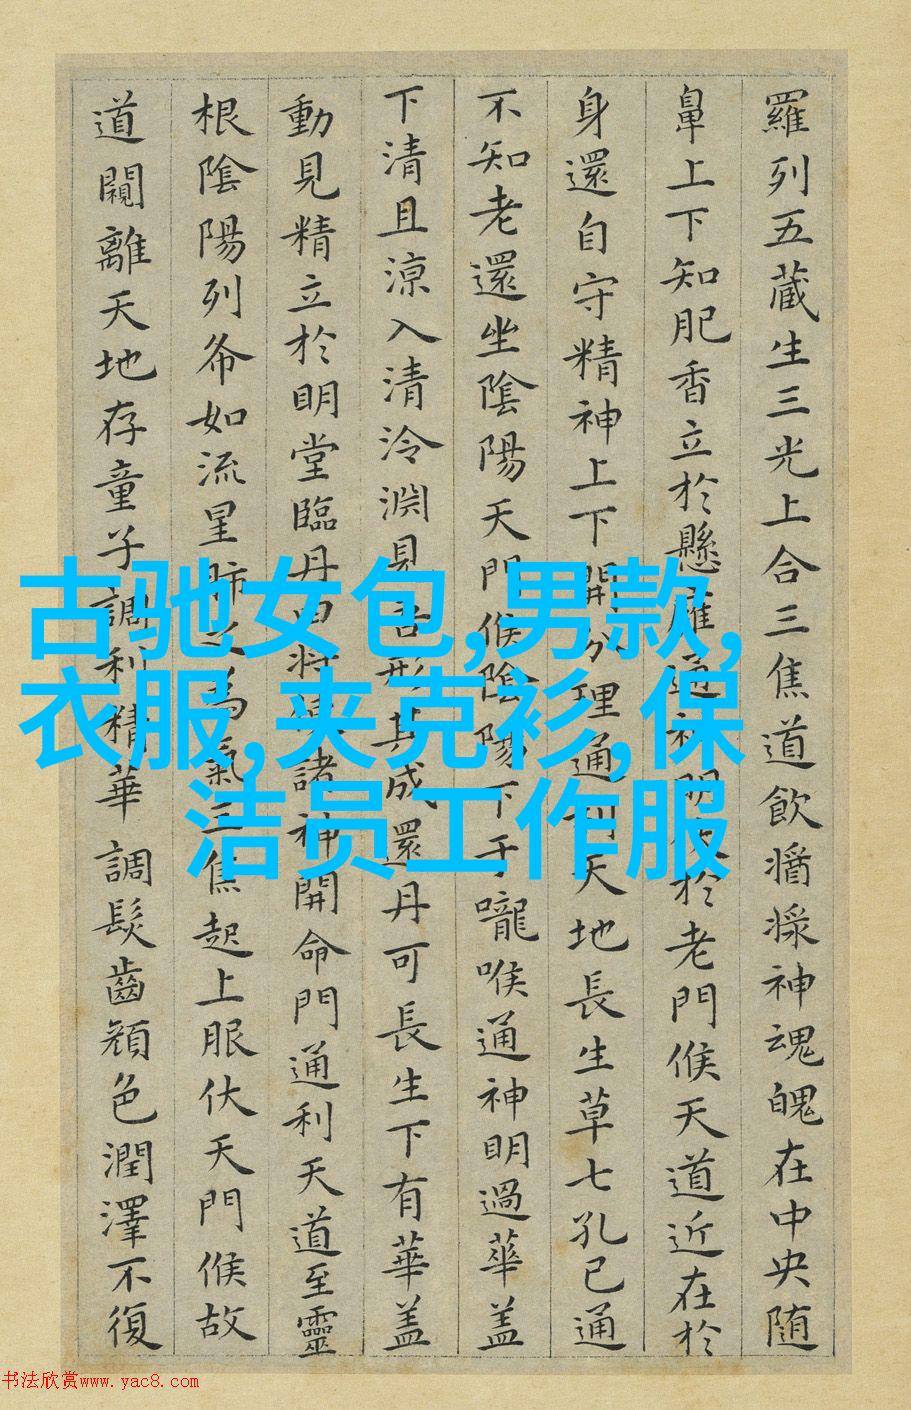 羅列五蔵生三光上合三焦道飲醬漿神魂魄在中央随
鼻上下知肥香立於懸雍通神明伏於老門候天道近在於
身還自守精神上下開分理通利天地長生草七孔已通
不知老還坐陰陽天門候陰陽下于嚨喉通神明過華盖
下清且涼入清泠淵見吾形其成還丹可長生下有華盖
動見精立於明堂臨丹田将使諸神開命門通利天道至靈
根陰陽列布如流星肺之為氣三焦起上服伏天門候故
道闚離天地存童子調利精華調髮齒顔色潤澤不復
古驰女包,男款,
衣服,夹克衫,保
洁员工作服
书法欣赏www.yac8.com